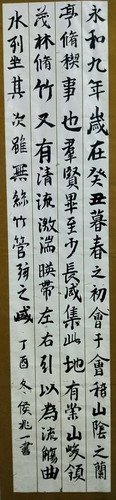 永和九年歲在癸丑暮春之初會于會稽山陰之蘭
亭脩稧事也羣賢畢至少長咸集此地有崇山峻領
茂林脩竹又有清流激湍暎帶左右引以為流觴曲
水列坐其次雖無絲竹管弦之盛 丁酉冬侯兆一書